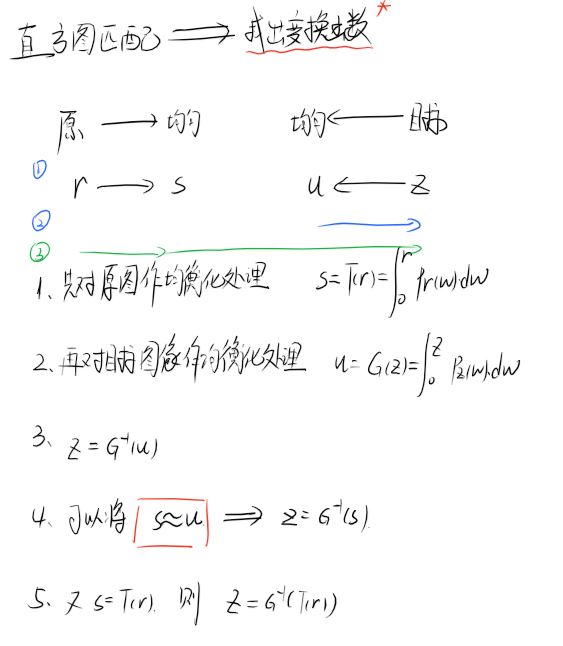 直方图匹配 ⟹ 找出变换函数 *
原 → 均匀 均匀 ← 目标
①
r → s u ← z
②
③
1、先对原图作均衡化处理 s=T(r)=∫₀ʳ Pr(w)dw
2、再对目标图像作均衡化处理 u=G(z)=∫₀ᶻ Pz(w)dw
3、z=G⁻¹(u)
4、可以将 s≈u ⟹ z=G⁻¹(s)
5、又 s=T(r) 则 z=G⁻¹(T(r))